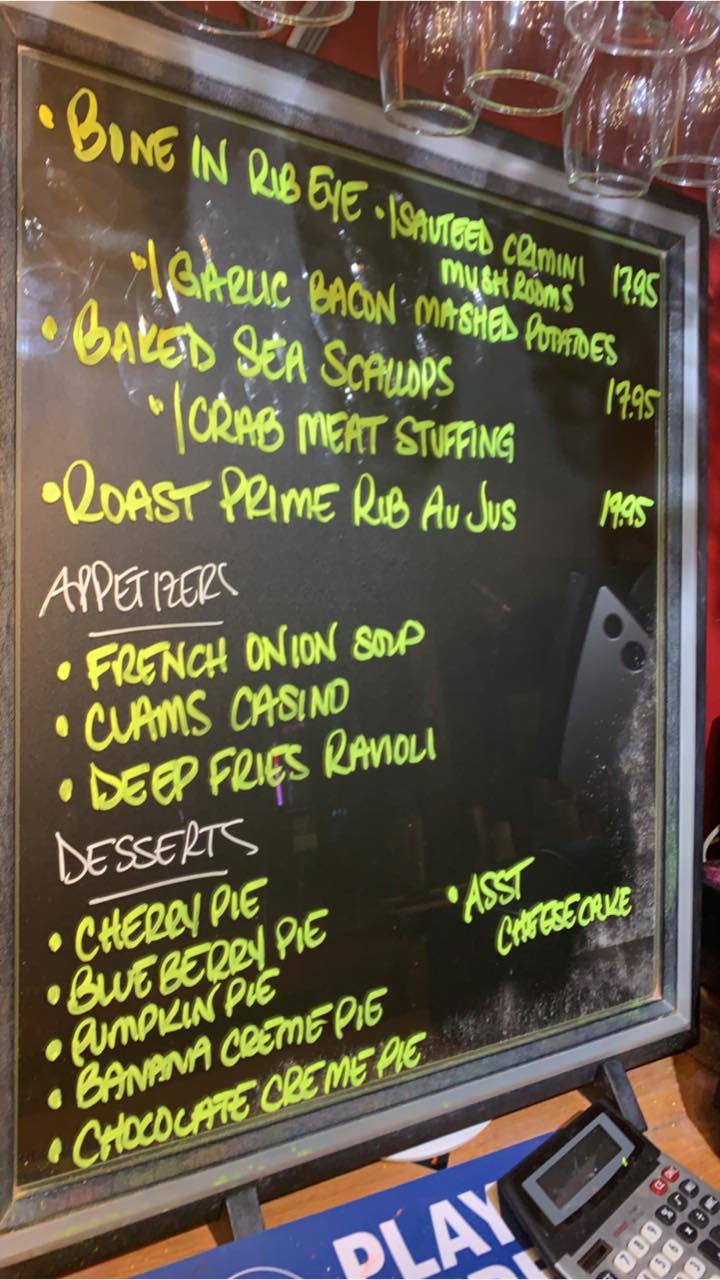 • BONE IN RIB EYE • /SAUTEED CRIMINI
MUSHROOMS 17.95
"/GARLIC BACON MASHED POTATOES
• BAKED SEA SCALLOPS 17.95
"/CRAB MEAT STUFFING
• ROAST PRIME RIB AU JUS 19.95
APPETIZERS
• FRENCH ONION SOUP
• CLAMS CASINO
• DEEP FRIES RAVIOLI
DESSERTS
• CHERRY PIE
• BLUEBERRY PIE
• PUMPKIN PIE
• BANANA CREME PIE
• CHOCOLATE CREME PIE
• ASST
CHEESECAKE
PLAY